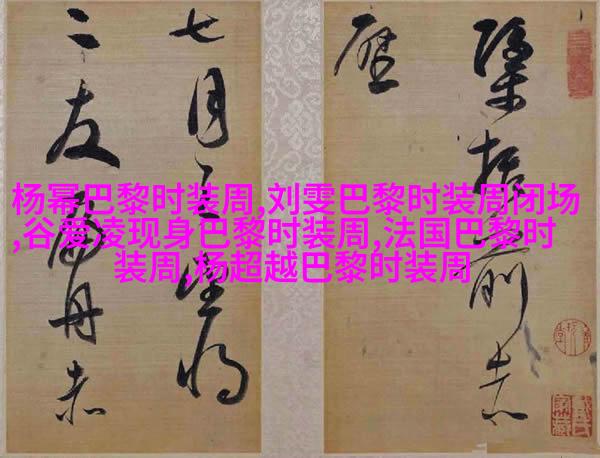 杨幂巴黎时装周,刘雯巴黎时装周闭场
,谷爱凌现身巴黎时装周,法国巴黎时
装周,杨超越巴黎时装周
括前赤
壁
七月之望
二友扁舟赤